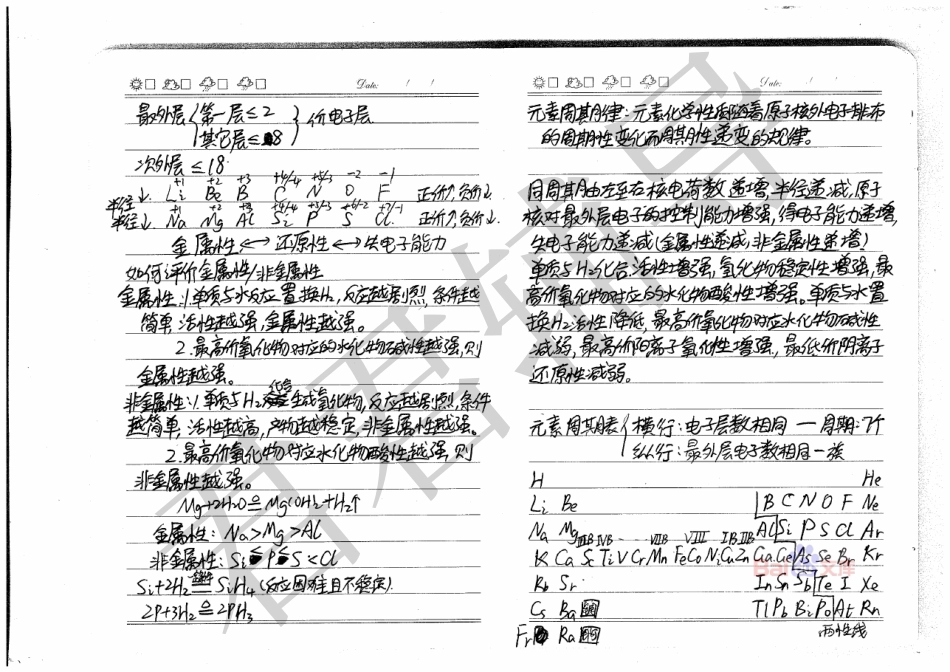 Date: / /
最外层{第一层≤2 }价电子层
其它层≤8
次外层≤18
+1 +2 +3 +4/-4 +5/-3 -2 -1
半径↓. Li Be B C N O F 正价↑,负价↓.
+1 +2 +3 +4/-4 +5/-3 +6/-2 +7/-1
半径↓. Na Mg Al Si P S Cl 正价↑,负价↓.
金属性↔还原性↔失电子能力
如何评价金属性/非金属性
金属性:1.单质与水反应置换H₂,反应越剧烈,条件越
简单,活性越强,金属性越强。
2.最高价氧化物对应的水化物碱性越强,则
金属性越强。
非金属性:1.单质与H₂化合生成氢化物,反应越剧烈,条件
越简单,活性越高,产物越稳定,非金属性越强。
2.最高价氧化物对应水化物酸性越强,则
非金属性越强。
Mg+2H₂O≙Mg(OH)₂+H₂↑
金属性:Na>Mg>Al
非金属性:Si<P<S<Cl
Si+2H₂ 高温 SiH₄(反应困难且不稳定).
2P+3H₂≙2PH₃
Date: / /
元素周期律:元素化学性质随着原子核外电子排布
的周期性变化而周期性递变的规律。
同周期由左至右核电荷数递增,半径递减,原子
核对最外层电子的控制能力增强,得电子能力递增,
失电子能力递减(金属性递减,非金属性递增)
单质与H₂化合活性增强,氢化物稳定性增强,最
高价氧化物对应的水化物酸性增强。单质与水置
换H₂活性降低,最高价氧化物对应水化物碱性
减弱,最高价阳离子氧化性增强,最低价阴离子
还原性减弱。
元素周期表{横行:电子层数相同一周期:7个
纵行:最外层电子数相同一族
H He
Li Be B C N O F Ne
Na Mg ⅢB ⅣB ... ⅦB Ⅷ ⅠB ⅡB Al Si P S Cl Ar
K Ca Sc Ti V Cr Mn Fe Co Ni Cu Zn Ga Ge As Se Br Kr
Rb Sr In Sn Sb Te I Xe
Cs Ba 镧 Tl Pb Bi Po At Rn
Fr Ra 锕 两性线